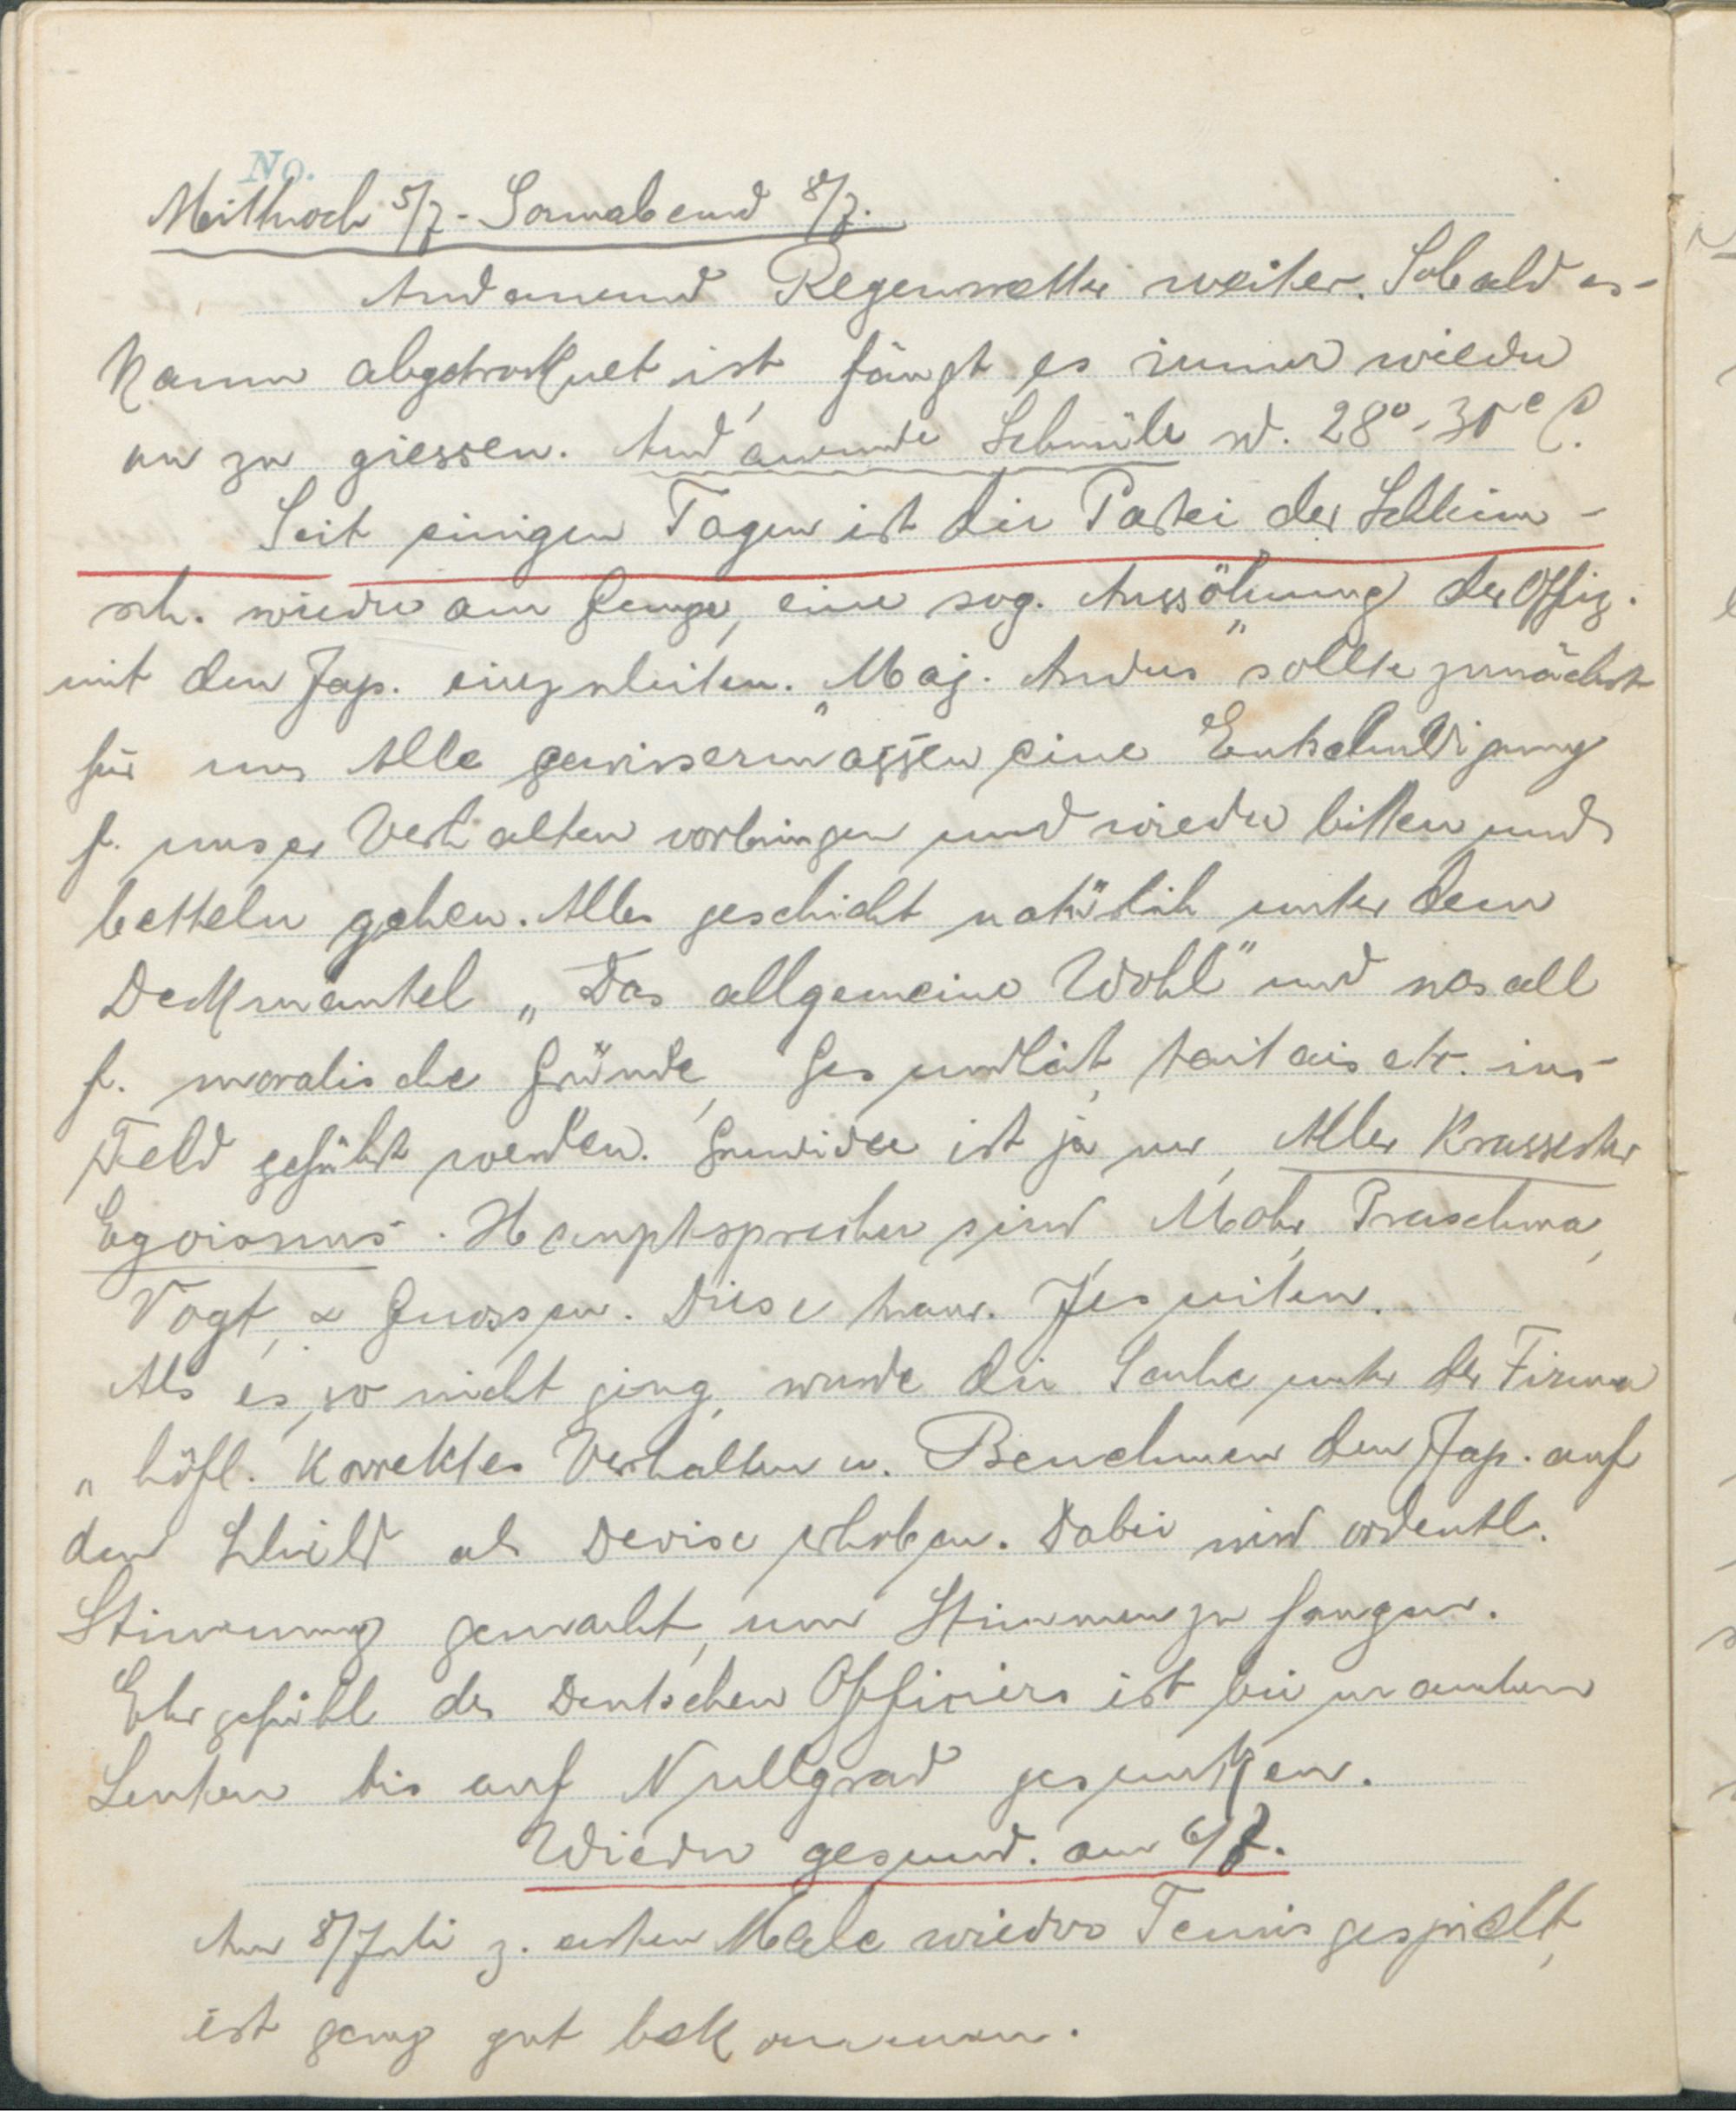 No.
Mittwoch 5/7 - Sonnabend 8/7.
Andauernd Regenwetter weiter. Sobald es
kaum abgetrocknet ist, fängt es immer wieder
an zu giessen. Andauernde Schwüle 28° - 30° C.
Seit einigen Tagen ist die Partei der Schleim-
sch. wieder am Gange, eine sog. Aussöhnung der Offiz.
mit den Jap. einzuleiten. "Maj. Anders" sollte zunächst
für uns Alle gewissermassen eine Entschuldigung
f. unser Verhalten vorbringen und wieder bitten und
betteln gehen. Alles geschieht natürlich unter dem
Deckmantel „Das allgemeine Wohl" und was all
f. moralische Gründe, Gesundheit, etc. ins
Feld geführt werden. Grundidee ist ja nur, Aller Krassester
Egoismus. Hauptsprecher sind Mohr, Praschma,
Vogt, & Genossen. Diese Jesuiten.
Als es so nicht ging, wurde die Sache unter der Firma
„höfl. korrektes Verhalten u. Benehmen den Jap. auf
den Schild als Devise erhoben. Dabei wird ordentl.
Stimmung gemacht, um Stimmen zu fangen.
Ehrgefühl des Deutschen Offiziers ist bei manchen
Leuten bis auf Nullgrad gesunken.
Wieder gesund. am 6/7.
Am 8/Juli z. ersten Male wieder Tennis gespielt,
ist ganz gut bekommen.